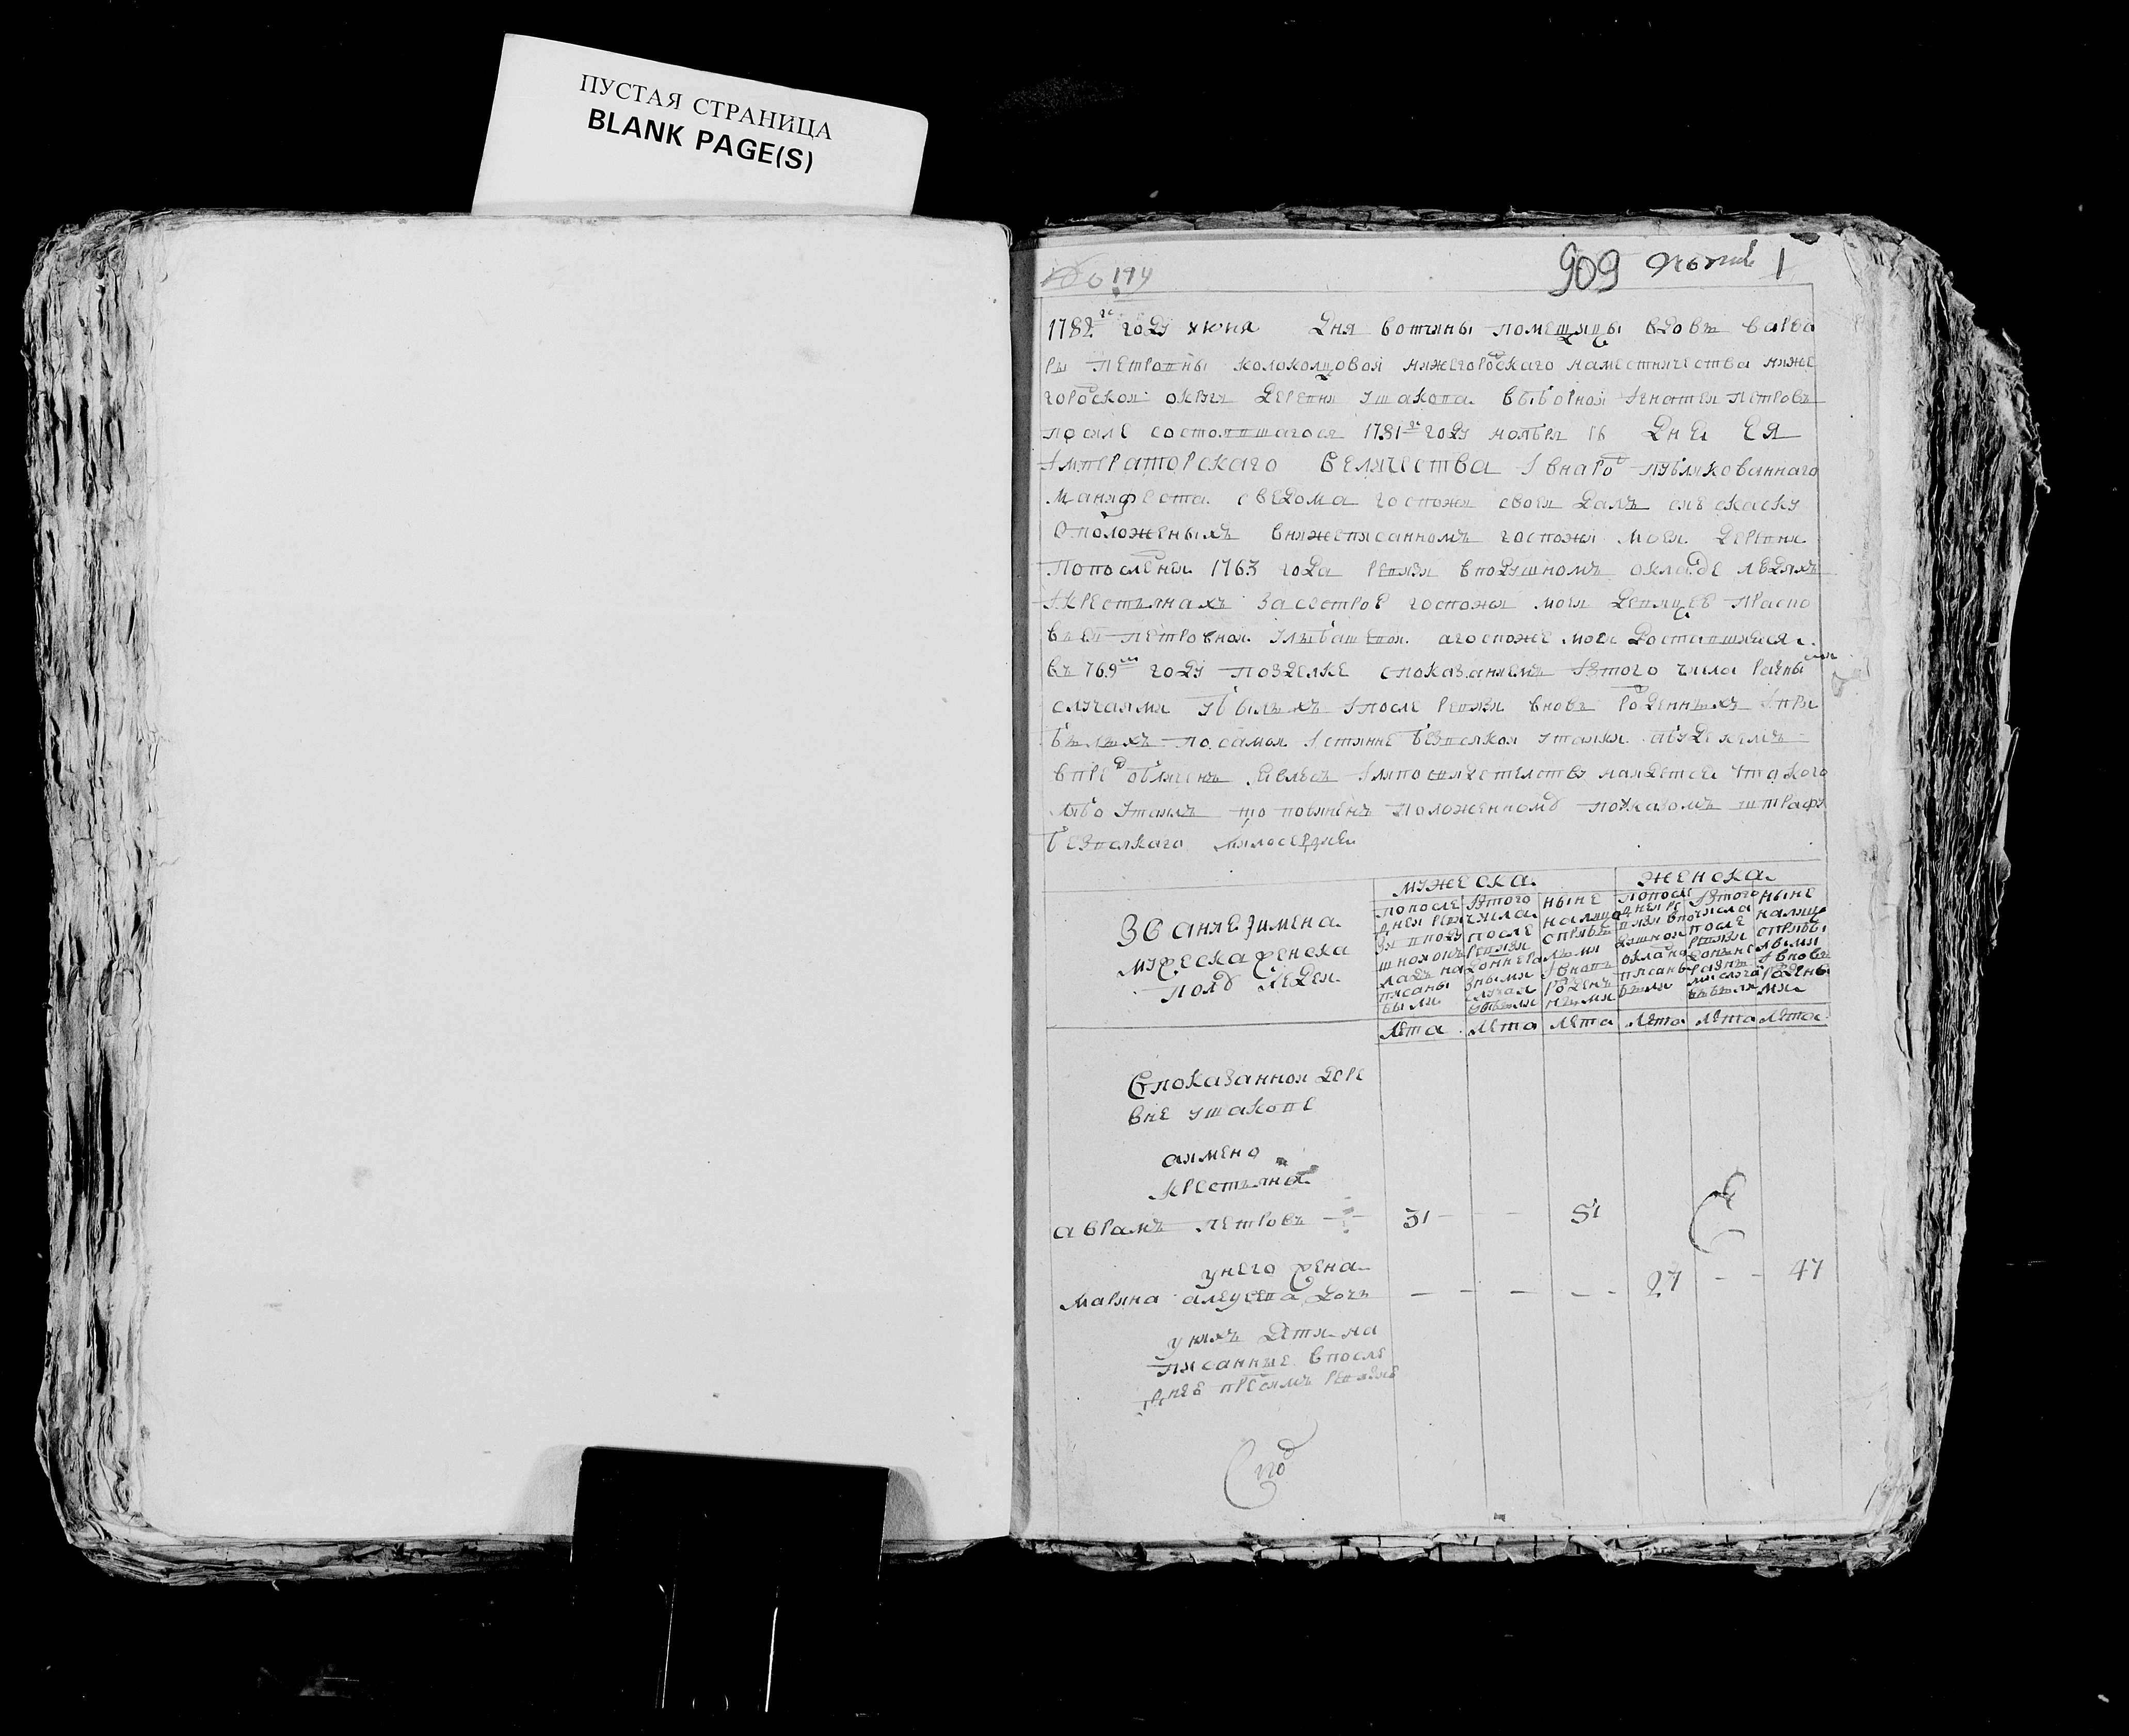 ПУСТАЯ СТРАНИЦА
BLANK PAGE(S)
№ 174
909 1
1782го году июня дня вотчины помещицы вдовы Варва
ры Петровны Колоколцовой нижегородскаго наместничества ниже
городской округи деревни Ушакова выборной Игнатей Петровъ
после состоявшагося 1781го году ноября 16 дня ЕЯ
Императорскаго Величества и внародъ публикованнаго
манифеста сведома госпожи своей далъ сию скаску
Оположеныхъ внижеписанномъ госпожи моей деревни
Попоследней 1763 года ревизи вподушномъ окладе людяхъ
икрестьянахъ засестрое госпожи моей девицее Праско
вьей Петровной агоспоже моей доставшияся
въ 769м году позделке споказаниемъ изтого числа разными
случаями убылыхъ ипосле ревизи вновь рожденныхъ ипри
былыхъ посамой истинне безвсякой утайки абуде кемъ
впредь обличенъ явлюсь илипосвидетелству найдется что кого
либо утаилъ то повиненъ положенному поуказомъ штрафу
безвсякаго милосердия
мужеска женска
звание иимена
мужеска иженска
полу людей
попоследней ревизи вподушномъ окладъ написаны были
изтого числа после ревизи разными случаи убыли
ныне налицо сприбылыми ивновь рожденными
попоследней ревизи вподушной окладъ написаны были
изтого числа после ревизи разными случаи выбыли
ныне налицо сприбылыми ивновь рожденными
лета лета лета лета лета лета
Споказанной дере
вне Ушакове
аимено
крестьянъ
Аврамъ Петровъ — 31 — — 51
унего жена
Марина дочь — — — — 27 — — 47
унихъ дети на
писанные впосле
дне пресимъ ревизие